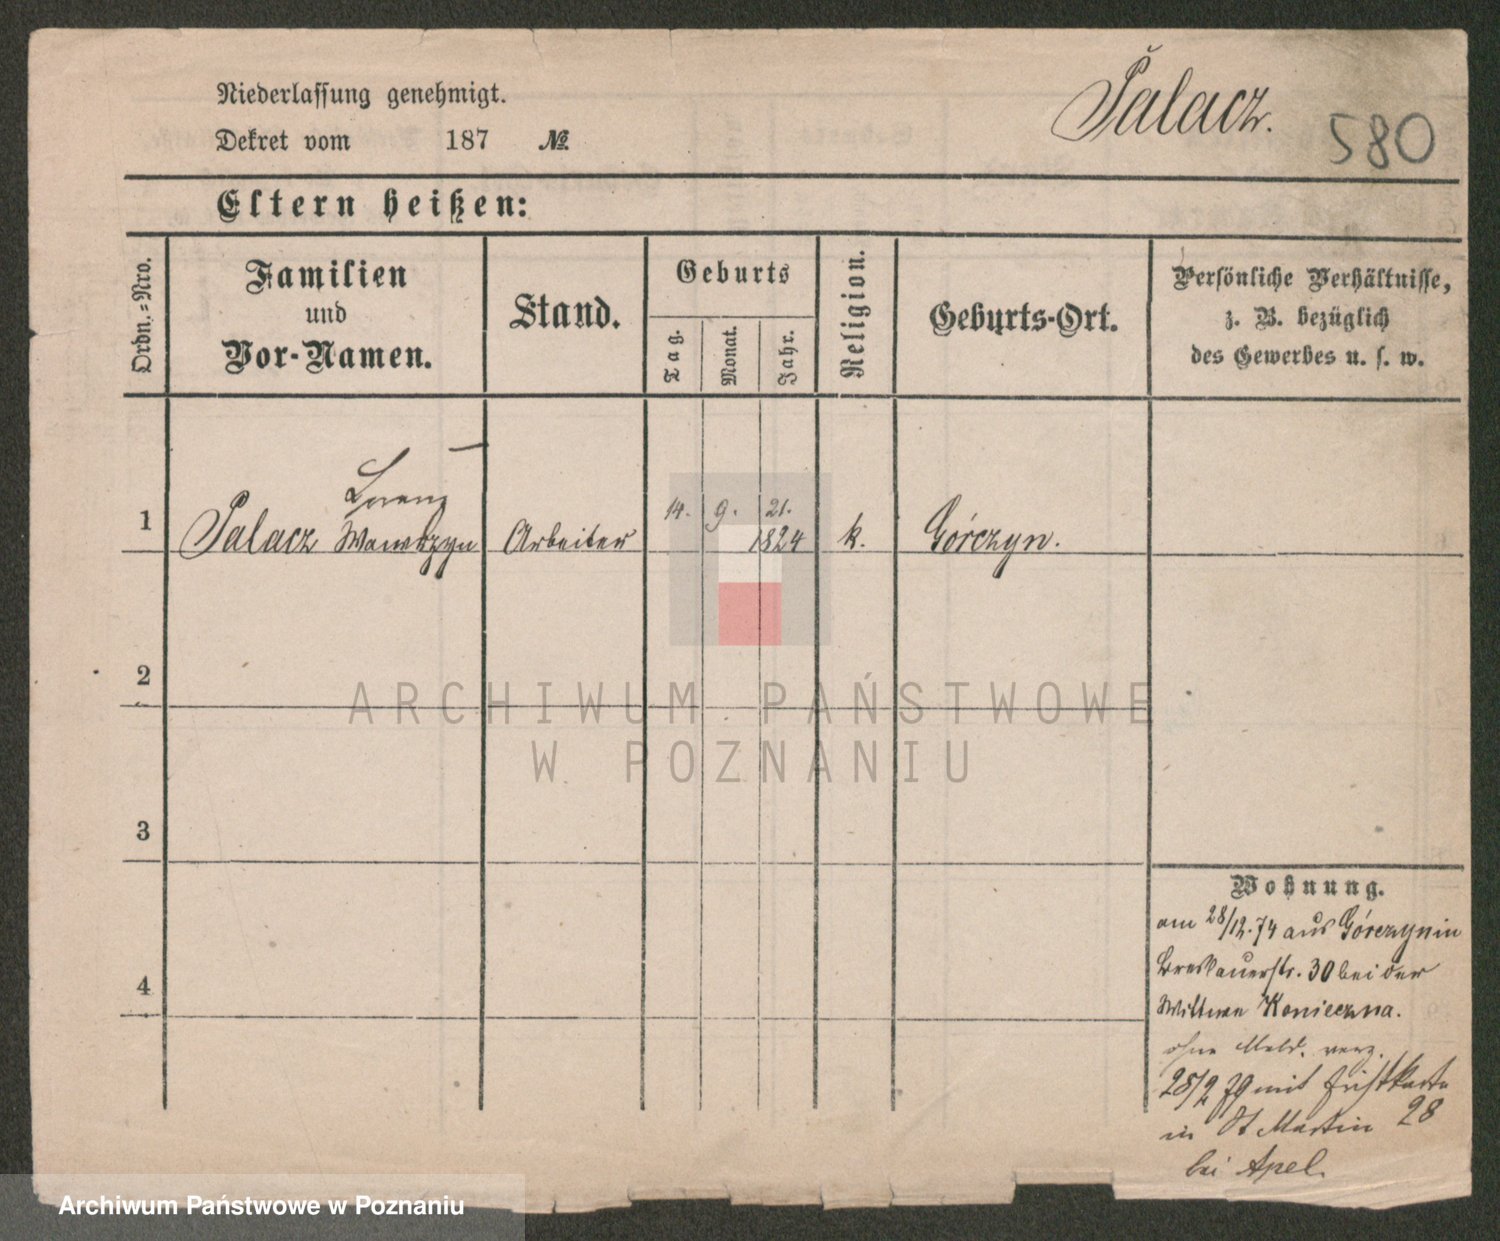 Niederlassung genehmigt.
Dekret vom 187 №
Palacz.
580
Eltern heißen:
Ordn.=Nro.
Familien
und
Vor-Namen.
Stand.
Geburts
Tag.
Monat.
Jahr.
Religion.
Geburts-Ort.
Persönliche Verhältnisse,
z. B. bezüglich
des Gewerbes u. s. w.
Lorenz
14. 9. 21.
1 Palacz Wawrzyn Arbeiter 1824 k. Górczyn.
2
ARCHIWUM PAŃSTWOWE
W POZNANIU
3
4
Wohnung.
am 28/12.74 aus Górczyn in
Breslauerstr. 30 bei der
Wittwe Konieczna.
ohne Meld. verz.
28/2 79 mit Fristkarte
in St Martin 28
bei Apel.
Archiwum Państwowe w Poznaniu